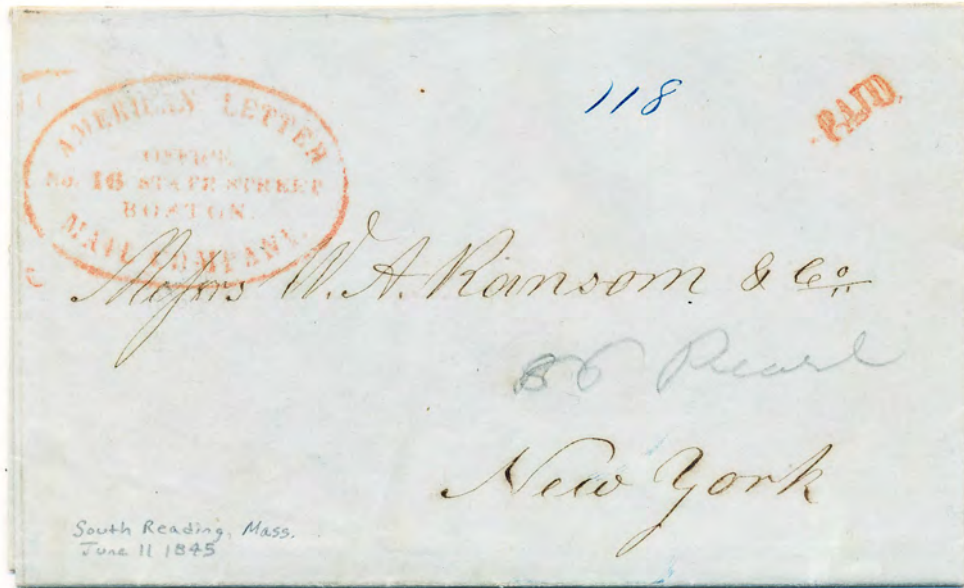 AMERICAN LETTER
OFFICE
No. 16 STATE STREET
BOSTON.
MAIL COMPANY.
118
PAID
Messrs W. A. Ransom & Co.
Pearl
New York
South Reading, Mass.
June 11 1845